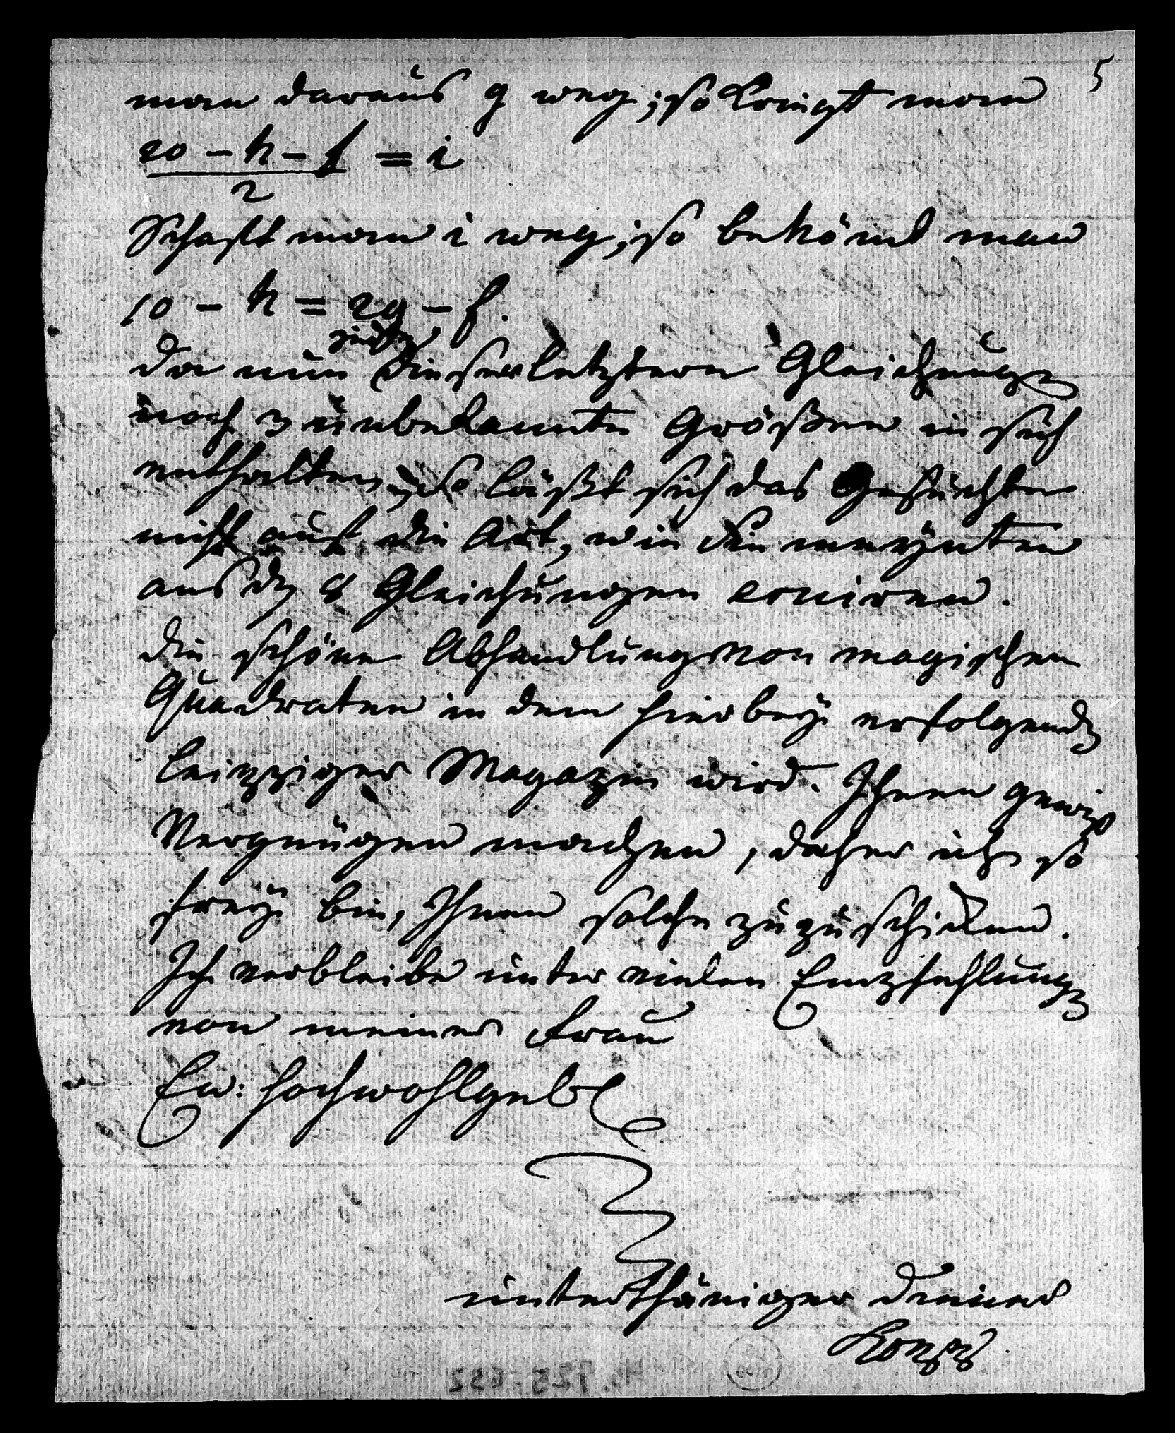 5
man daraus g weg; so kriegt man
20 - h - f = i
2
Schaft man i weg; so bekömt man
10 - h = 2g - f.
jede
da nun dieser letztern Gleichung
noch 3 unbekannte Größen in sich
enthalten, so läßt sich das Gesuchte
nicht auf die Art, wie Sie meynten
aus den 8 Gleichungen eruiren.
Die schöne Abhandlung von magischen
Quadraten in dem hierbey erfolgenden
Leipziger Magazin wird Ihnen gewiß
Vergnügen machen, daher ich so
frey bin, Ihnen solche zuzuschicken.
Ich verbleibe unter vielen Empfehlungen
von meiner Frau
Ew: Hochwohlgeb
unterthäniger Diener